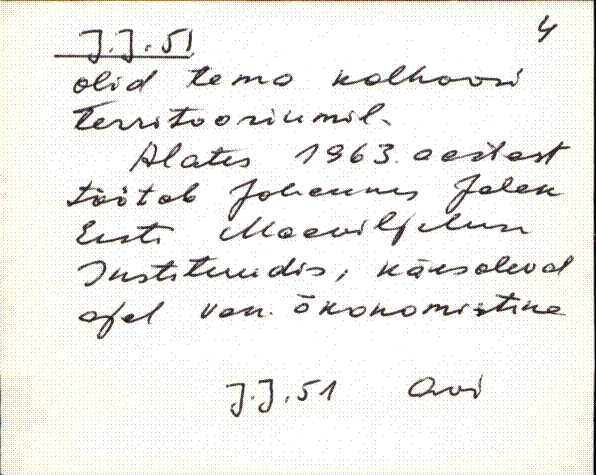 4
J.J.51
olid tema kolhoosi
territooriumil.
Alates 1963. aastast
töötab Johannes Jalak
Eesti Maaviljeluse
Instituudis, käesoleval
ajal van. ökonomistina
J.J.51 Avi